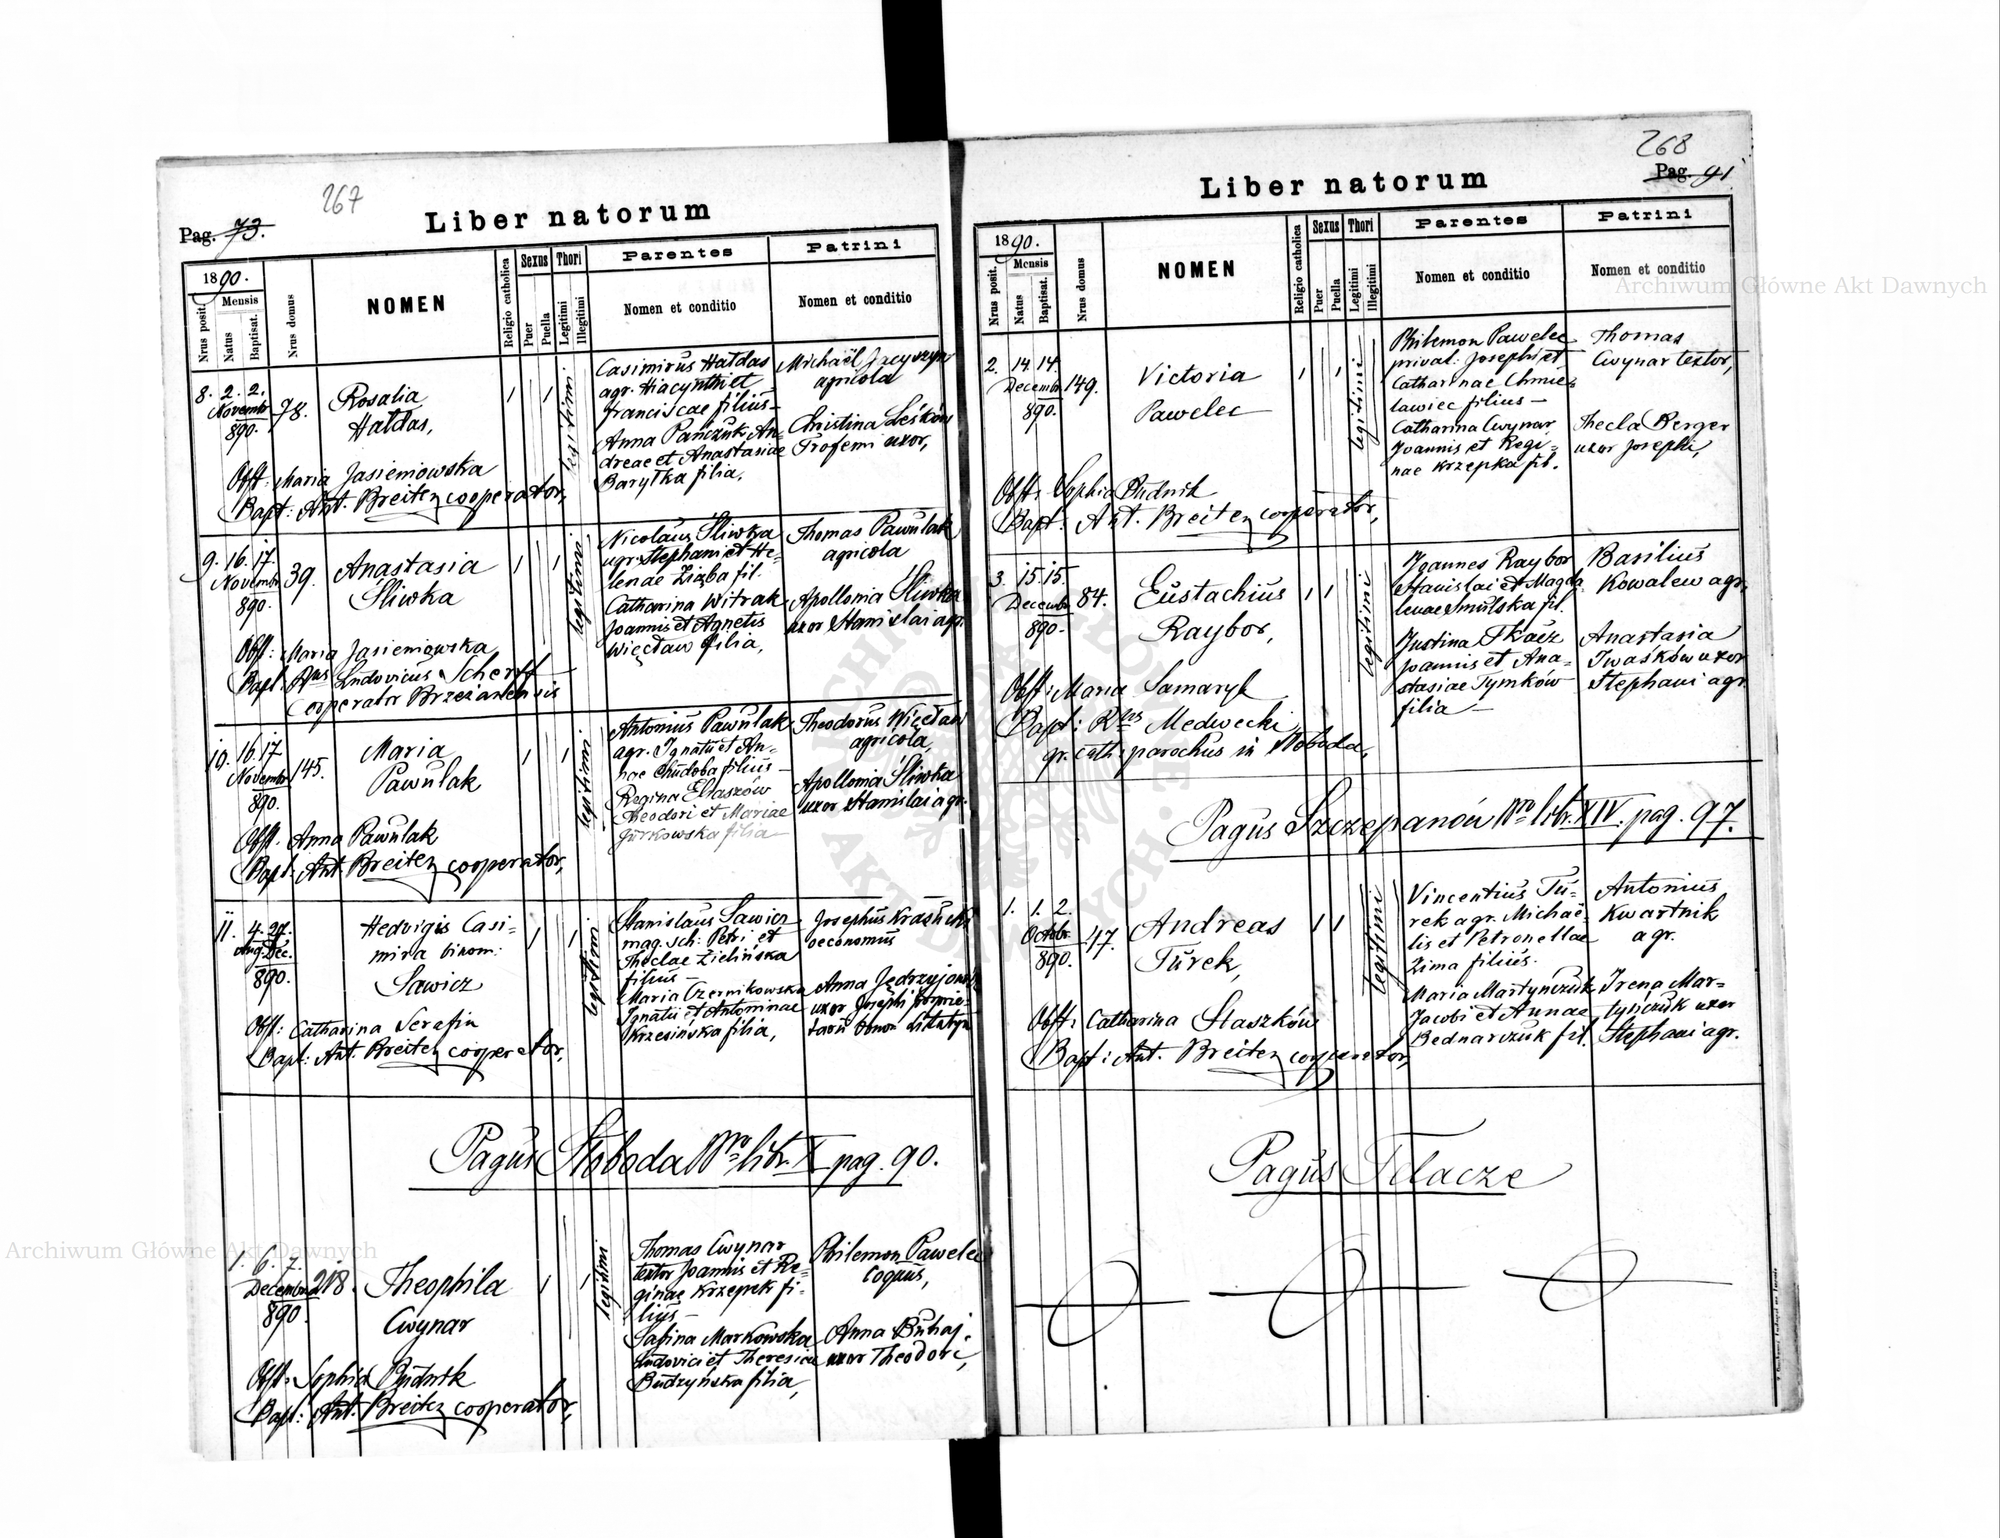 267
Pag. 73.
Liber natorum
1890.
Nrus posit.
Mensis
Natus
Baptisat.
Nrus domus
NOMEN
Religio catholica
Sexus
Puer
Puella
Thori
Legitimi
Illegitimi
Parentes
Nomen et conditio
Patrini
Nomen et conditio
8. 2. 2.
Novembr
890.
78.
Rosalia
Hałdas,
1
1
legitimi
Casimirus Hałdas
agr. Hiacynthi et
Franciscae filius —
Anna Pańczuk An-
dreae et Anastasiae
Baryłka filia,
Michaël
agricola
Christina Leśków
Trofemi uxor,
Obst: Maria Jasieniowska
Bapt: Ant. Breiter cooperator,
9. 16. 17.
Novembr
890.
39.
Anastasia
Śliwka
1
1
legitimi
Nicolaus Śliwka
agr. Stephani et He-
lenae Zięba fil.
Catharina Witrak
Joannis et Agnetis
Więcław filia,
Thomas Pawulak
agricola
Apollonia Śliwka
uxor Stanislai agr.
Obst: Maria Jasieniowska
Bapt. Rus Ludovicus Scherff
cooperator Brzezanensis
10. 16. 17
Novembr
890.
145.
Maria
Pawulak
1
1
legitimi
Antonius Pawulak
agr. Ignatii et An-
nae Chudoba filius —
Regina Eliaszów
Theodori et Mariae
Jurkowska filia —
Theodorus Więcław
agricola,
Apollonia Śliwka
uxor Stanislai agr.
Obst. Anna Pawulak
Bapt: Ant. Breiter cooperator,
11. 4. 27.
Aug. Dec.
890.
Hedvigis Casi-
mira binom:
Sawicz
1
1
legitimi
Stanislaus Sawicz
mag. sch: Petri et
Theclae Zielińska
filius —
Maria Czernikowska
Ignatii et Antoninae
Krzesińska filia,
Josephus Krasucki
oeconomus
Anna
uxor Josephi proprie-
tarii bonor
Obst: Catharina Serafin
Bapt: Ant. Breiter cooperator,
Pagus Słoboda Nro libr. X pag. 90.
1. 6. 7.
Decembr
890
218.
Theophila
Cwynar
1
1
legitimi
Thomas Cwynar
textor Joannis et Re-
ginae Krzepek fi-
lius —
Safina Markowska
Ludovici et Theresiae
Budzyńska filia,
Philemon Pawelec
coquus,
Anna Buhaj
uxor Theodori,
Obst: Sophia Budnik
Bapt: Ant. Breiter cooperator,
268
Pag. 91
Liber natorum
1890.
Nrus posit.
Mensis
Natus
Baptisat.
Nrus domus
NOMEN
Religio catholica
Sexus
Puer
Puella
Thori
Legitimi
Illegitimi
Parentes
Nomen et conditio
Patrini
Nomen et conditio
2. 14. 14.
Decembr
890.
149.
Victoria
Pawelec
1
1
legitimi
Philemon Pawelec
prival. Josephi et
Catharinae Chmie-
lawiec filius —
Catharina Cwynar
Joannis et Regi-
nae Krzepka fil.
Thomas
Cwynar textor,
Thecla Berger
uxor Josephi,
Obst: Sophia Budnik
Bapt: Ant. Breiter cooperator,
3. 15. 15.
Decembr
890.
84.
Eustachius
Raybor,
1
1
legitimi
Joannes Raybor
Stanislai et Magda-
lenae Smulska fil.
Justina Tkacz
Joannis et Ana-
stasiae Tymków
filia —
Basilius
Kowalew agr.
Anastasia
Iwaśków uxor
Stephani agr.
Obst: Maria Samaryk
Bapt: Rus Medwecki
gr. cath. parochus in Słoboda,
Pagus Szczepanów Nro libr. XIV. pag. 97.
1. 1. 2.
Octobr.
890.
47.
Andreas
Turek,
1
1
legitimi
Vincentius Tu-
rek agr. Michaë-
lis et Petronellae
Zima filius.
Maria Martynczuk
Jacobi et Annae
Bednarczuk fil.
Antonius
Kwartnik
agr.
Irena Mar-
tyńczuk uxor
Stephani agr.
Obst: Catharina Staszków
Bapt: Ant. Breiter cooperator,
Pagus Telacze
Archiwum Główne Akt Dawnych
Archiwum Główne Akt Dawnych